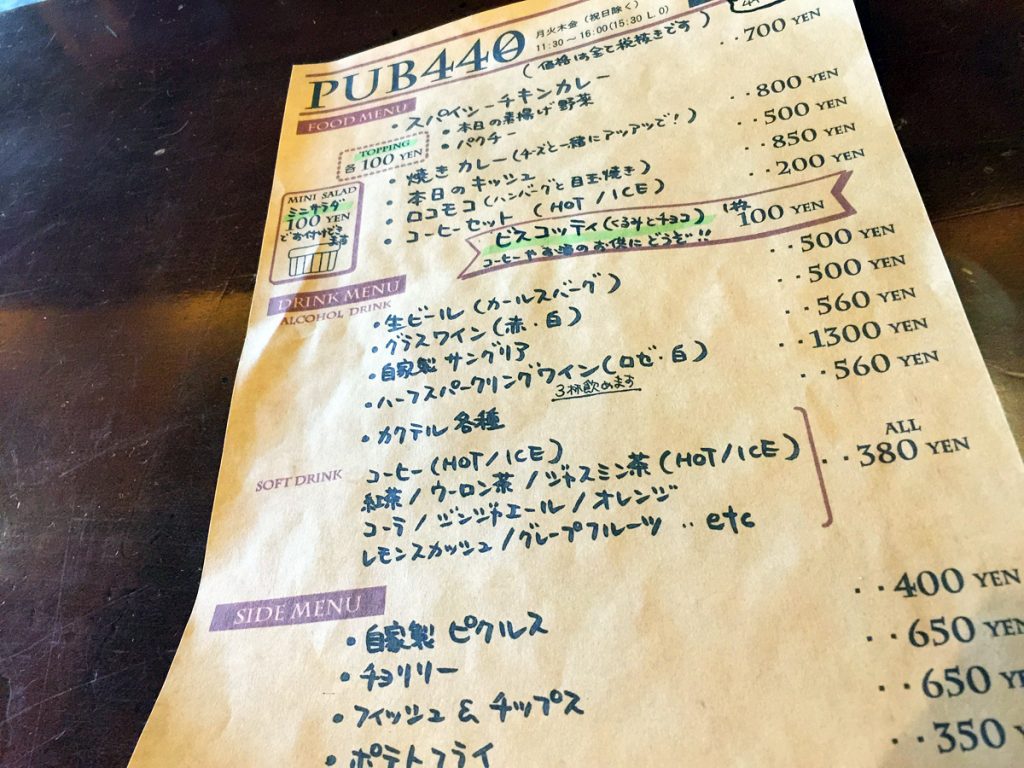 PUB440
月火木金（祝日除く）
11:30〜16:00(15:30 L.O)
(価格は全て税抜きです)
FOOD MENU
・スパイシーチキンカレー ‥700 YEN
・本日の素揚げ野菜
・パクチー
TOPPING
各100 YEN
・焼きカレー(チーズと一緒にアツアツで!) ‥800 YEN
・本日のキッシュ ‥500 YEN
・ロコモコ(ハンバーグと目玉焼き) ‥850 YEN
・コーヒーセット (HOT / ICE) ‥200 YEN
MINI SALAD
ミニサラダ
100 YEN
でお付けでき
ます
ビスコッティ(くるみとチョコ) 1枚 100 YEN
コーヒーやお酒のお供にどうぞ!!
DRINK MENU
ALCOHOL DRINK
・生ビール(カールスバーグ) ‥500 YEN
・グラスワイン(赤・白) ‥500 YEN
・自家製サングリア ‥560 YEN
・ハーフスパークリングワイン(ロゼ・白) ‥1300 YEN
3杯飲めます
・カクテル各種 ‥560 YEN
SOFT DRINK
コーヒー(HOT/ICE)
紅茶/ウーロン茶/ジャスミン茶(HOT/ICE)
コーラ/ジンジャエール/オレンジ
レモンスカッシュ/グレープフルーツ ‥etc
ALL
‥380 YEN
SIDE MENU
・自家製ピクルス ‥400 YEN
・チョリソー ‥650 YEN
・フィッシュ&チップス ‥650 YE
・ポテトフライ ‥350